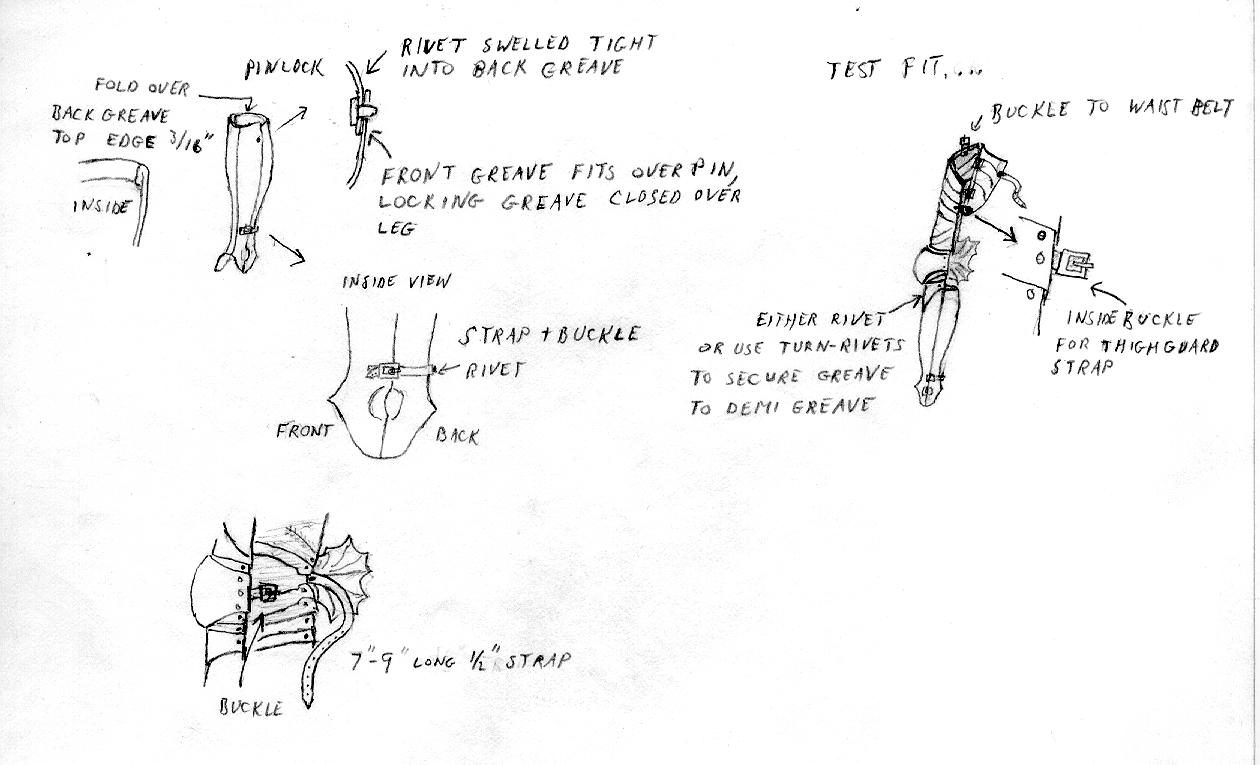 FOLD OVER
BACK GREAVE
TOP EDGE 3/16"
INSIDE
PINLOCK
RIVET SWELLED TIGHT
INTO BACK GREAVE
FRONT GREAVE FITS OVER PIN,
LOCKING GREAVE CLOSED OVER
LEG
INSIDE VIEW
STRAP + BUCKLE
RIVET
FRONT
BACK
7"-9" LONG 1/2" STRAP
BUCKLE
TEST FIT....
BUCKLE TO WAIST BELT
EITHER RIVET
OR USE TURN-RIVETS
TO SECURE GREAVE
TO DEMI GREAVE
INSIDE BUCKLE
FOR THIGHGUARD
STRAP